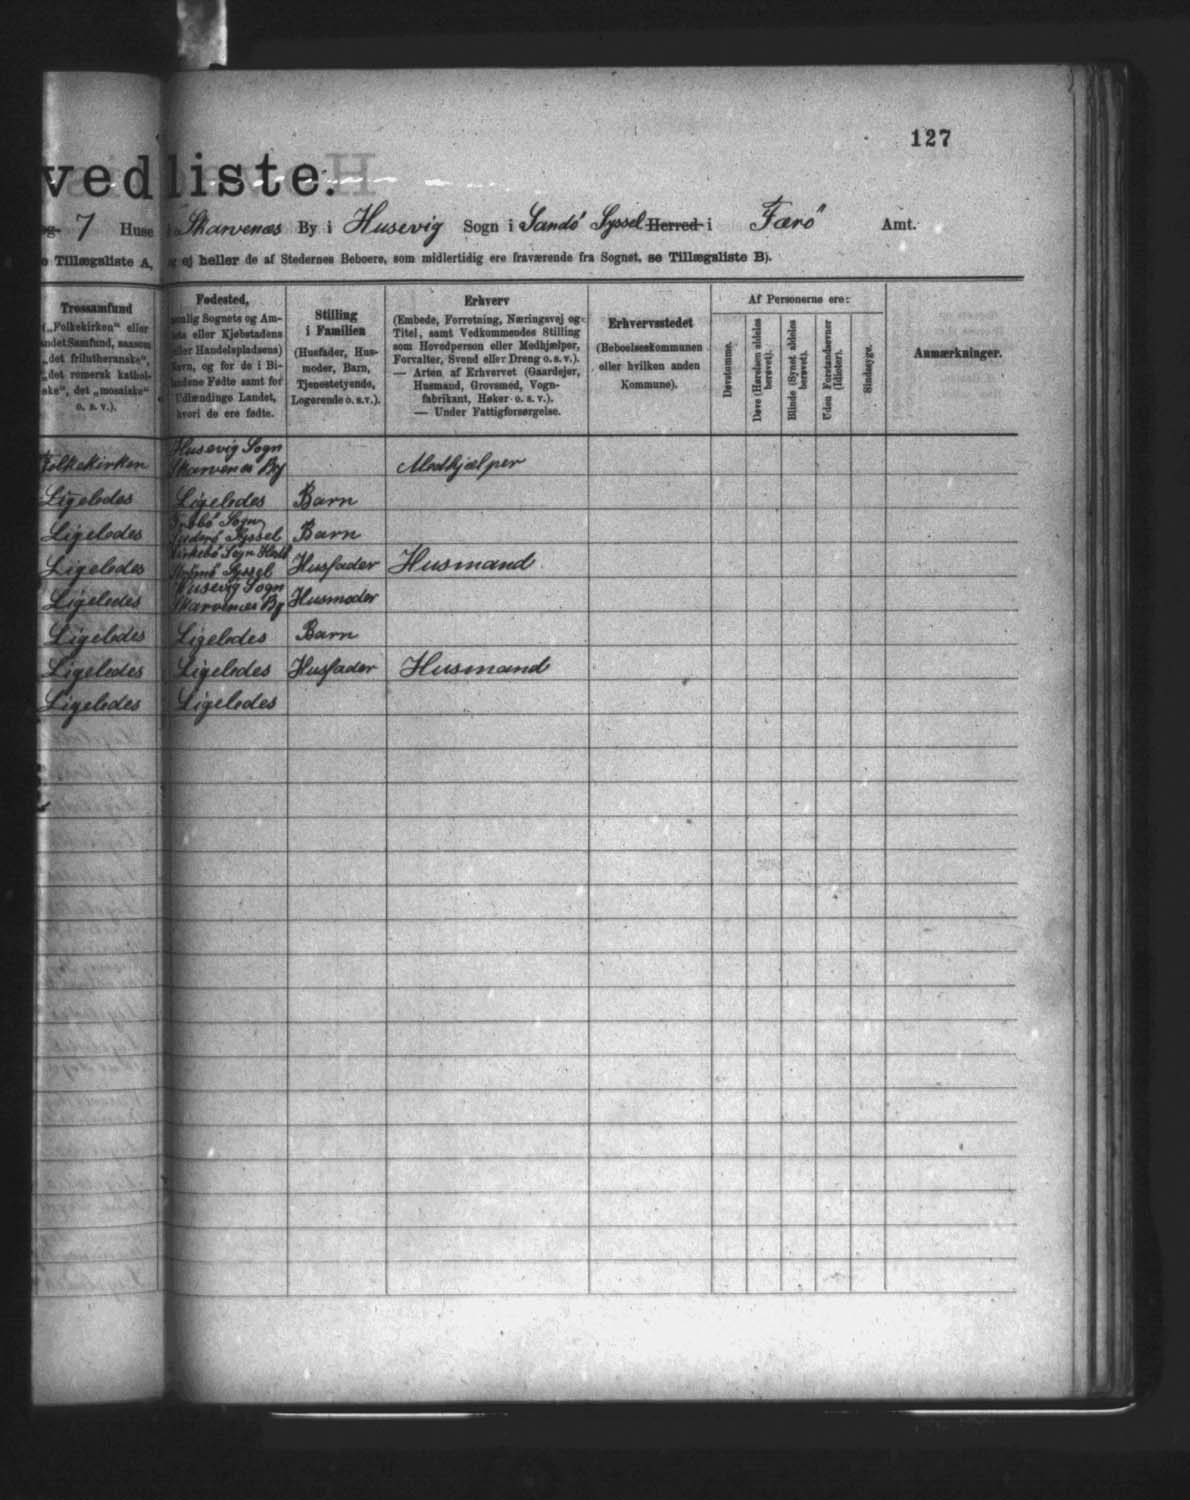 127
vedliste.
og 7 Huse i Skarvenæs By i Husevig Sogn i Sandö Syssel Herred i Færö Amt.
Tillægsliste A, og ej heller de af Stedernes Beboere, som midlertidig ere fraværende fra Sognet, se Tillægsliste B).
Trossamfund
(„Folkekirken“ eller
andet Samfund, saasom
„det frilutheranske“,
„det romersk kathol-
ske“, det „mosaiske“
o. s. v.).
Fødested,
nemlig Sognets og Am-
tets eller Kjøbstadens
(eller Handelspladsens)
Navn, og for de i Bi-
landene Fødte samt for
Udlændinge Landet,
hvori de ere fødte.
Stilling
i Familien
(Husfader, Hus-
moder, Barn,
Tjenestetyende,
Logerende o. s. v.).
Erhverv
(Embede, Forretning, Næringsvej og
Titel, samt Vedkommendes Stilling
som Hovedperson eller Medhjælper,
Forvalter, Svend eller Dreng o. s. v.).
— Arten af Erhvervet (Gaardejer,
Husmand, Grovsmed, Vogn-
fabrikant, Høker o. s. v.).
— Under Fattigforsørgelse.
Erhvervsstedet
(Beboelseskommunen
eller hvilken anden
Kommune).
Af Personerne ere:
Døvstumme.
Døve (Hørelsen aldeles
berøvet).
Blinde (Synet aldeles
berøvet).
Uden Forstandsevner
(Idioter).
Sindssyge.
Anmærkninger.
Folkekirken Husevig Sogn
Skarvenæs By Medhjælper
Ligeledes Ligeledes Barn
Ligeledes Sogn
Syssel Barn
Ligeledes Kirkebö Sogn
Strömö Syssel Husfader Husmand
Ligeledes Husevig Sogn
Skarvenæs By Husmoder
Ligeledes Ligeledes Barn
Ligeledes Ligeledes Husfader Husmand
Ligeledes Ligeledes